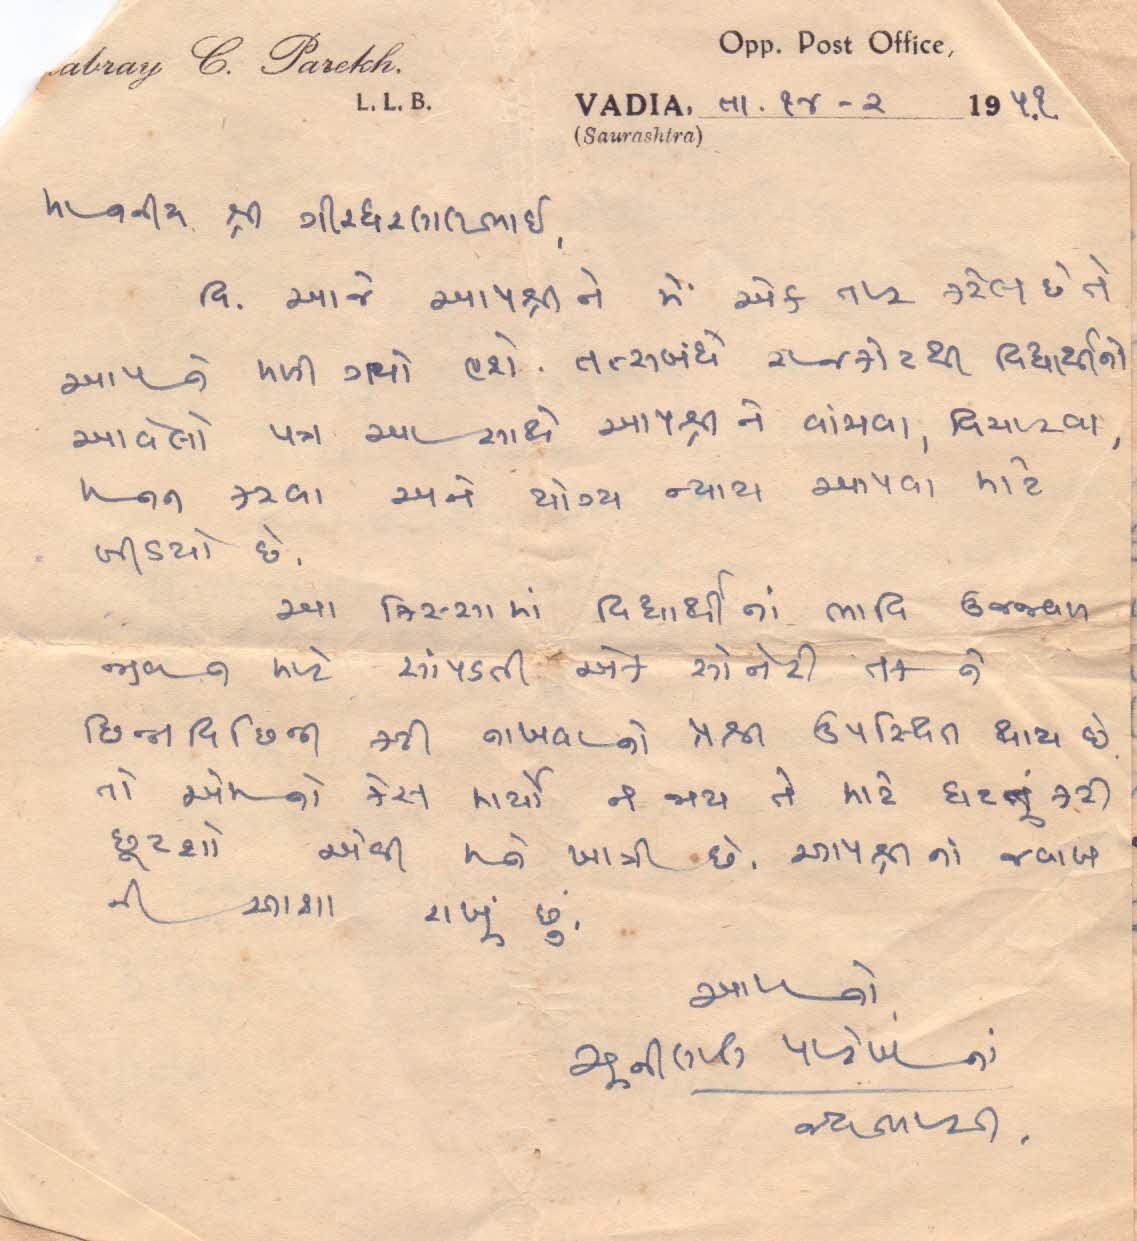 abray C. Parekh.
L. L. B.
Opp. Post Office,
VADIA, તા. ૧૪ - ૨ 19 ૫૧
(Saurashtra)
માનનીય શ્રી ગીરધરલાલભાઈ,
વિ. આજે આપશ્રીને મેં એક તાર કરેલ છે તે
આપને મળી ગયો હશે. તત્સબંધે રાજકોટથી વિદ્યાર્થીનો
આવેલો પત્ર આ સાથે આપશ્રીને વાંચવા, વિચારવા,
મનન કરવા અને યોગ્ય ન્યાય આપવા માટે
બીડયો છે.
આ કિસ્સામાં વિદ્યાર્થીનાં ભાવિ ઉજ્જવળ
જીવન માટે સાંપડતી એક સોનેરી તક ને
છિન્નવિછિન્ન કરી નાખવાનો પ્રશ્ન ઉપસ્થિત થાય છે.
તો એમનો કેસ માર્યો ન જાય તે માટે ઘટતું કરી
છૂટશો એવી મને ખાત્રી છે. આપશ્રીનાં જવાબ
ની આશા રાખું છું.
આપનો
પારેખનાં
જયભારતી.